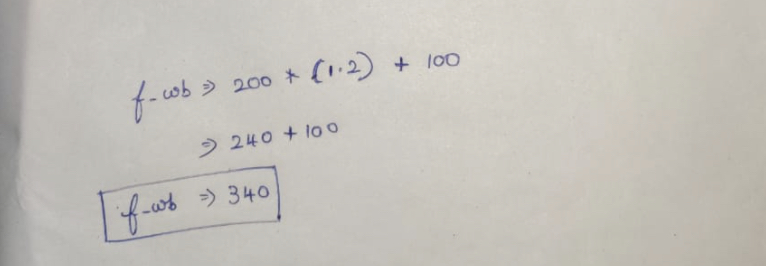 f_wb ⇒ 200 * (1.2) + 100
⇒ 240 + 100
f_wb ⇒ 340